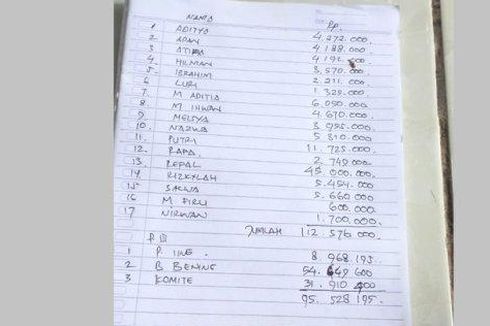 NAMA Rp.
1 ADITYA 4.272.000.
2 APAN 4.188.000.
3 ATIKA 4.192.000.
4 HILMAN 3.570.000.
5. IBRAHIM 2.211.000.
6 LURI 1.329.000.
7 M ADITIA 6.050.000.
8 M IHWAN 4.670.000.
9 MEISYA 3.955.000.
10. NAZWA 5.310.000.
11. PUTRI 11.725.000.
12. RAPA 2.749.000.
13. REPAL 45.000.000.
14. RIZKYLAH 5.454.000.
15 SALWA 5.660.000
16 M FIRLI 600.000.
17 NIRWAN 1.700.000.
JUMLAH 112.576.000.
1 P. IING. 8 968 195.
2 B BENING 54.649 600
3 KOMITE 31.910 400
95.528 195.